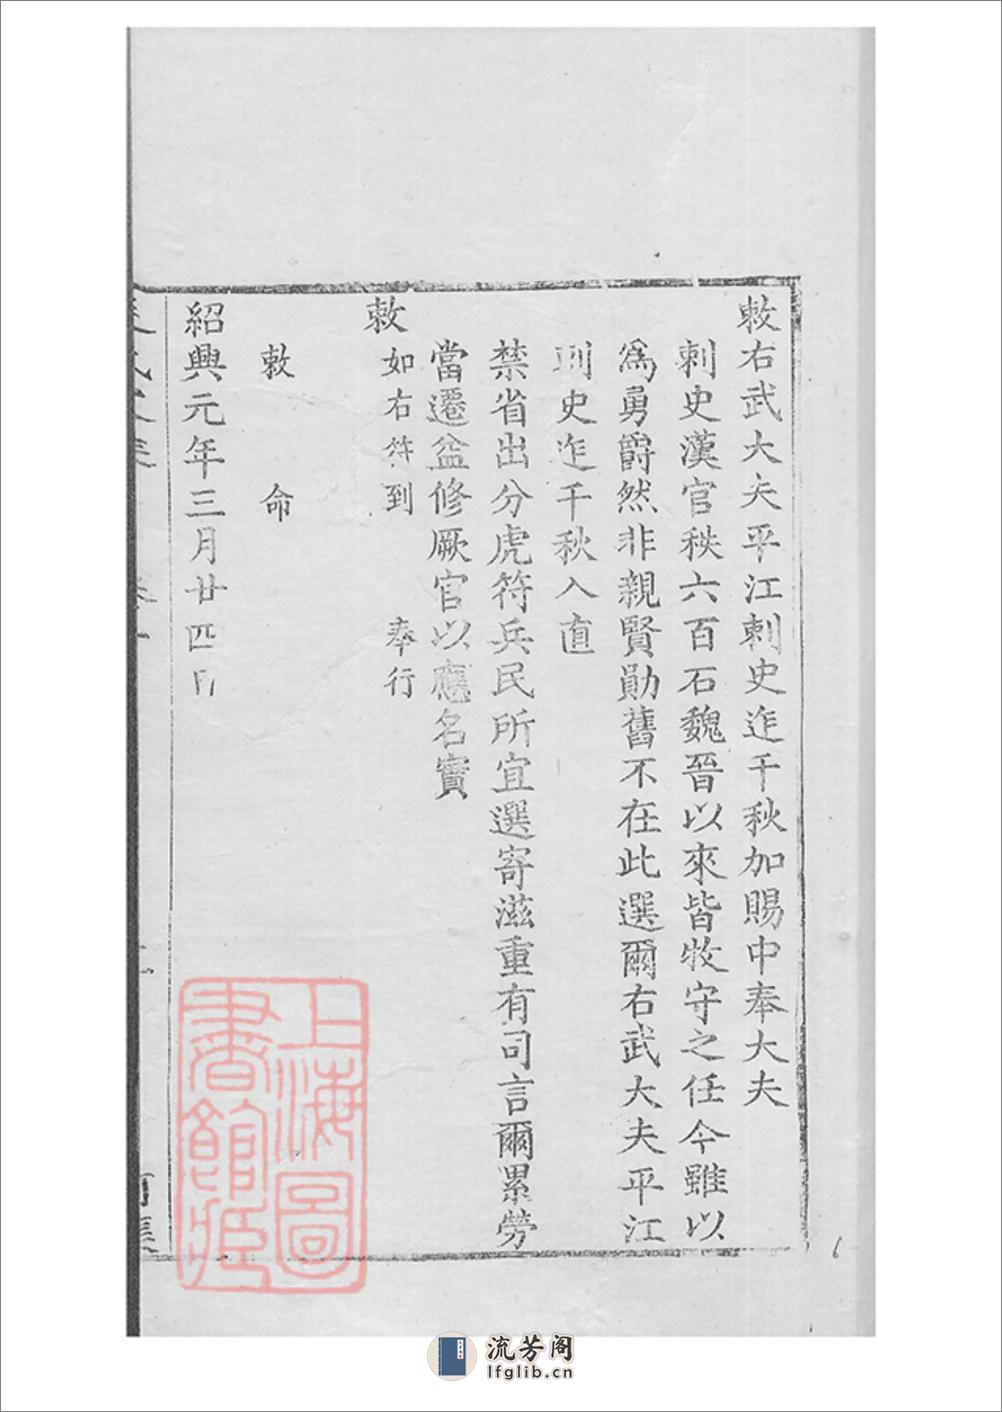 敕右武大夫平江刺史迮千秋加賜中奉大夫
刺史漢官秩六百石魏晉以來皆牧守之任今雖以
爲勇爵然非親賢勛舊不在此選爾右武大夫平江
刺史迮千秋入直
禁省出分虎符兵民所宜選寄滋重有司言爾累勞
當遷益修厥官以應名實
敕如右符到 奉行
敕 命
紹興元年三月廿四日
上海圖
書館藏
6
流芳阁
lfglib.cn